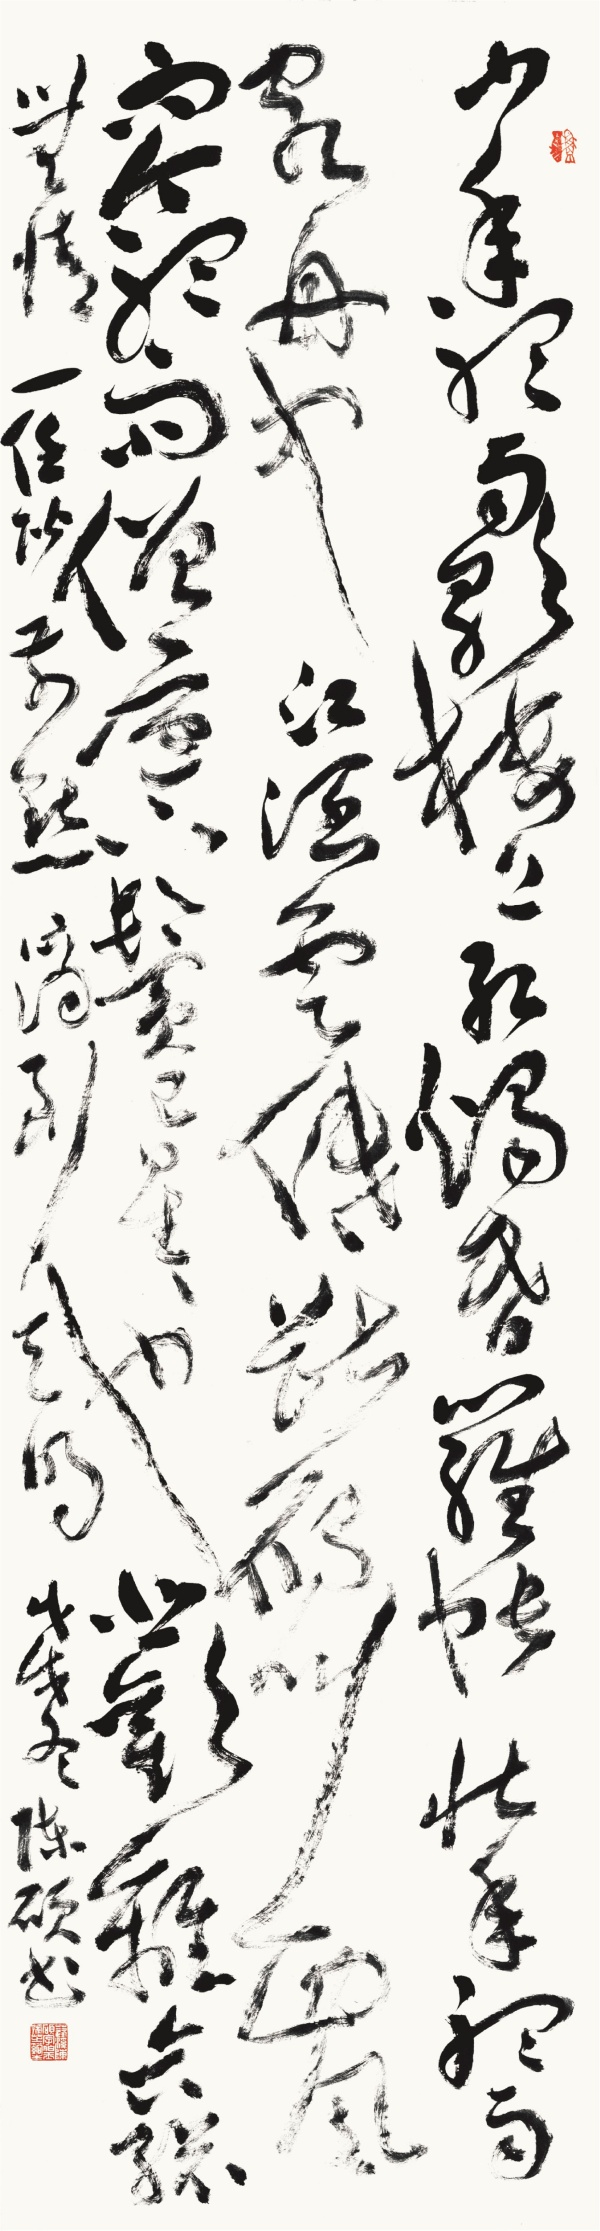 少年聽雨歌樓上紅燭昏羅帳壯年聽雨
客舟中江濶雲低斷雁叫西風
而今聽雨僧廬下鬢已星星也悲歡離合總
無情一任階前點滴到天明戊戌冬陳碩書